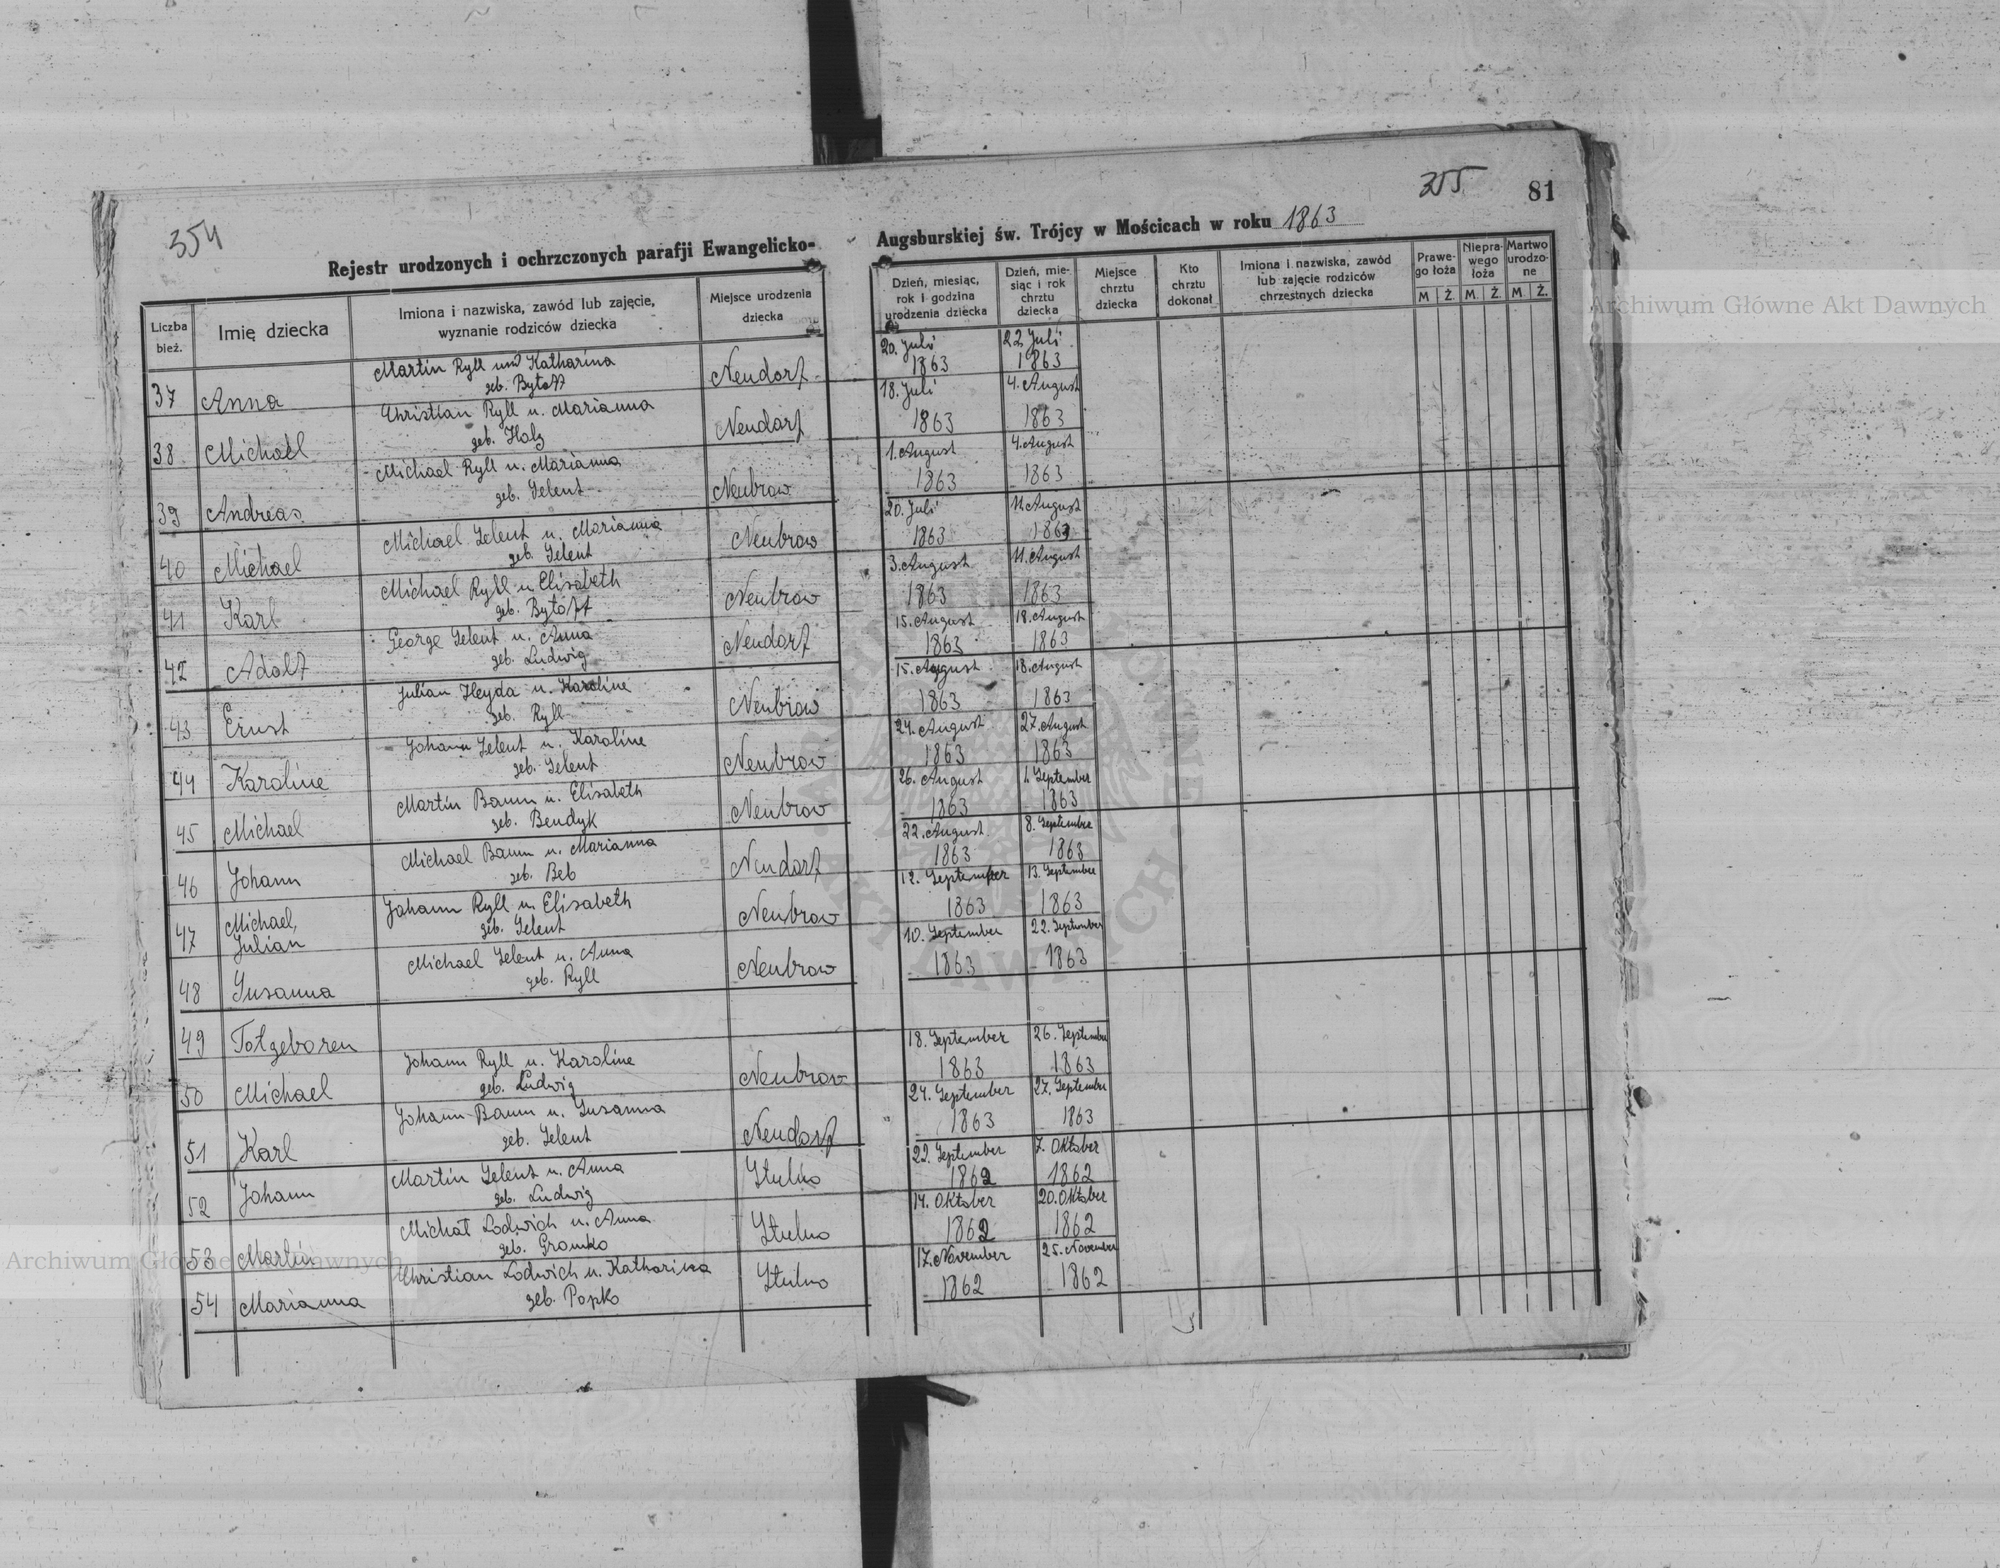 354
355
81
Rejestr urodzonych i ochrzczonych parafji Ewangelicko-
Augsburskiej św. Trójcy w Mościcach w roku 1863
Liczba bież.
Imię dziecka
Imiona i nazwiska, zawód lub zajęcie, wyznanie rodziców dziecka
Miejsce urodzenia dziecka
Dzień, miesiąc, rok i godzina urodzenia dziecka
Dzień, miesiąc i rok chrztu dziecka
Miejsce chrztu dziecka
Kto chrztu dokonał
Imiona i nazwiska, zawód lub zajęcie rodziców chrzestnych dziecka
Prawego łoża
Nieprawego łoża
Martwo urodzone
M Ż. M. Ż. M Ż.
37 Anna Martin Ryll und Katharina geb. Bytoft Neudorf 20. Juli 1863 22. Juli 1863
38 Michael Christian Ryll u. Marianna geb. Holz Neudorf 18. Juli 1863 4. August 1863
39 Andreas Michael Ryll u. Marianna geb. Selent Neubrow 1. August 1863 4. August 1863
40 Michael Michael Selent u. Marianna geb. Selent Neubrow 20. Juli 1863 11. August 1863
41 Karl Michael Ryll u. Elisabeth geb. Bytoft Neubrow 3. August 1863 11. August 1863
42 Adolf George Selent u. Anna geb. Ludwig Neudorf 15. August 1863 18. August 1863
43 Ernst Julian Heyda u. Karoline geb. Ryll Neubrow 15. August 1863 18. August 1863
44 Karoline Johann Selent u. Karoline geb. Selent Neubrow 24. August 1863 27. August 1863
45 Michael Martin Baum u. Elisabeth geb. Bendyk Neubrow 26. August 1863 1. September 1863
46 Johann Michael Baum u. Marianna geb. Beb Neudorf 22. August 1863 8. September 1863
47 Michael, Julian Johann Ryll u. Elisabeth geb. Selent Neubrow 12. September 1863 13. September 1863
48 Susanna Michael Selent u. Anna geb. Ryll Neubrow 10. September 1863 22. September 1863
49 Totgeboren
50 Michael Johann Ryll u. Karoline geb. Ludwig Neubrow 18. September 1863 26. September 1863
51 Karl Johann Baum u. Susanna geb. Selent Neudorf 24. September 1863 27. September 1863
52 Johann Martin Selent u. Anna geb. Ludwig Stulno 22. September 1862 7. Oktober 1862
53 Martin Michał Lodwich u. Anna geb. Gromko Stulno 14. Oktober 1862 20. Oktober 1862
54 Marianna Christian Lodwich u. Katharina geb. Popko Stulno 17. November 1862 25. November 1862
Archiwum Główne Akt Dawnych
Archiwum Główne Akt Dawnych
ARCHIWUM GŁÓWNE AKT DAWNYCH